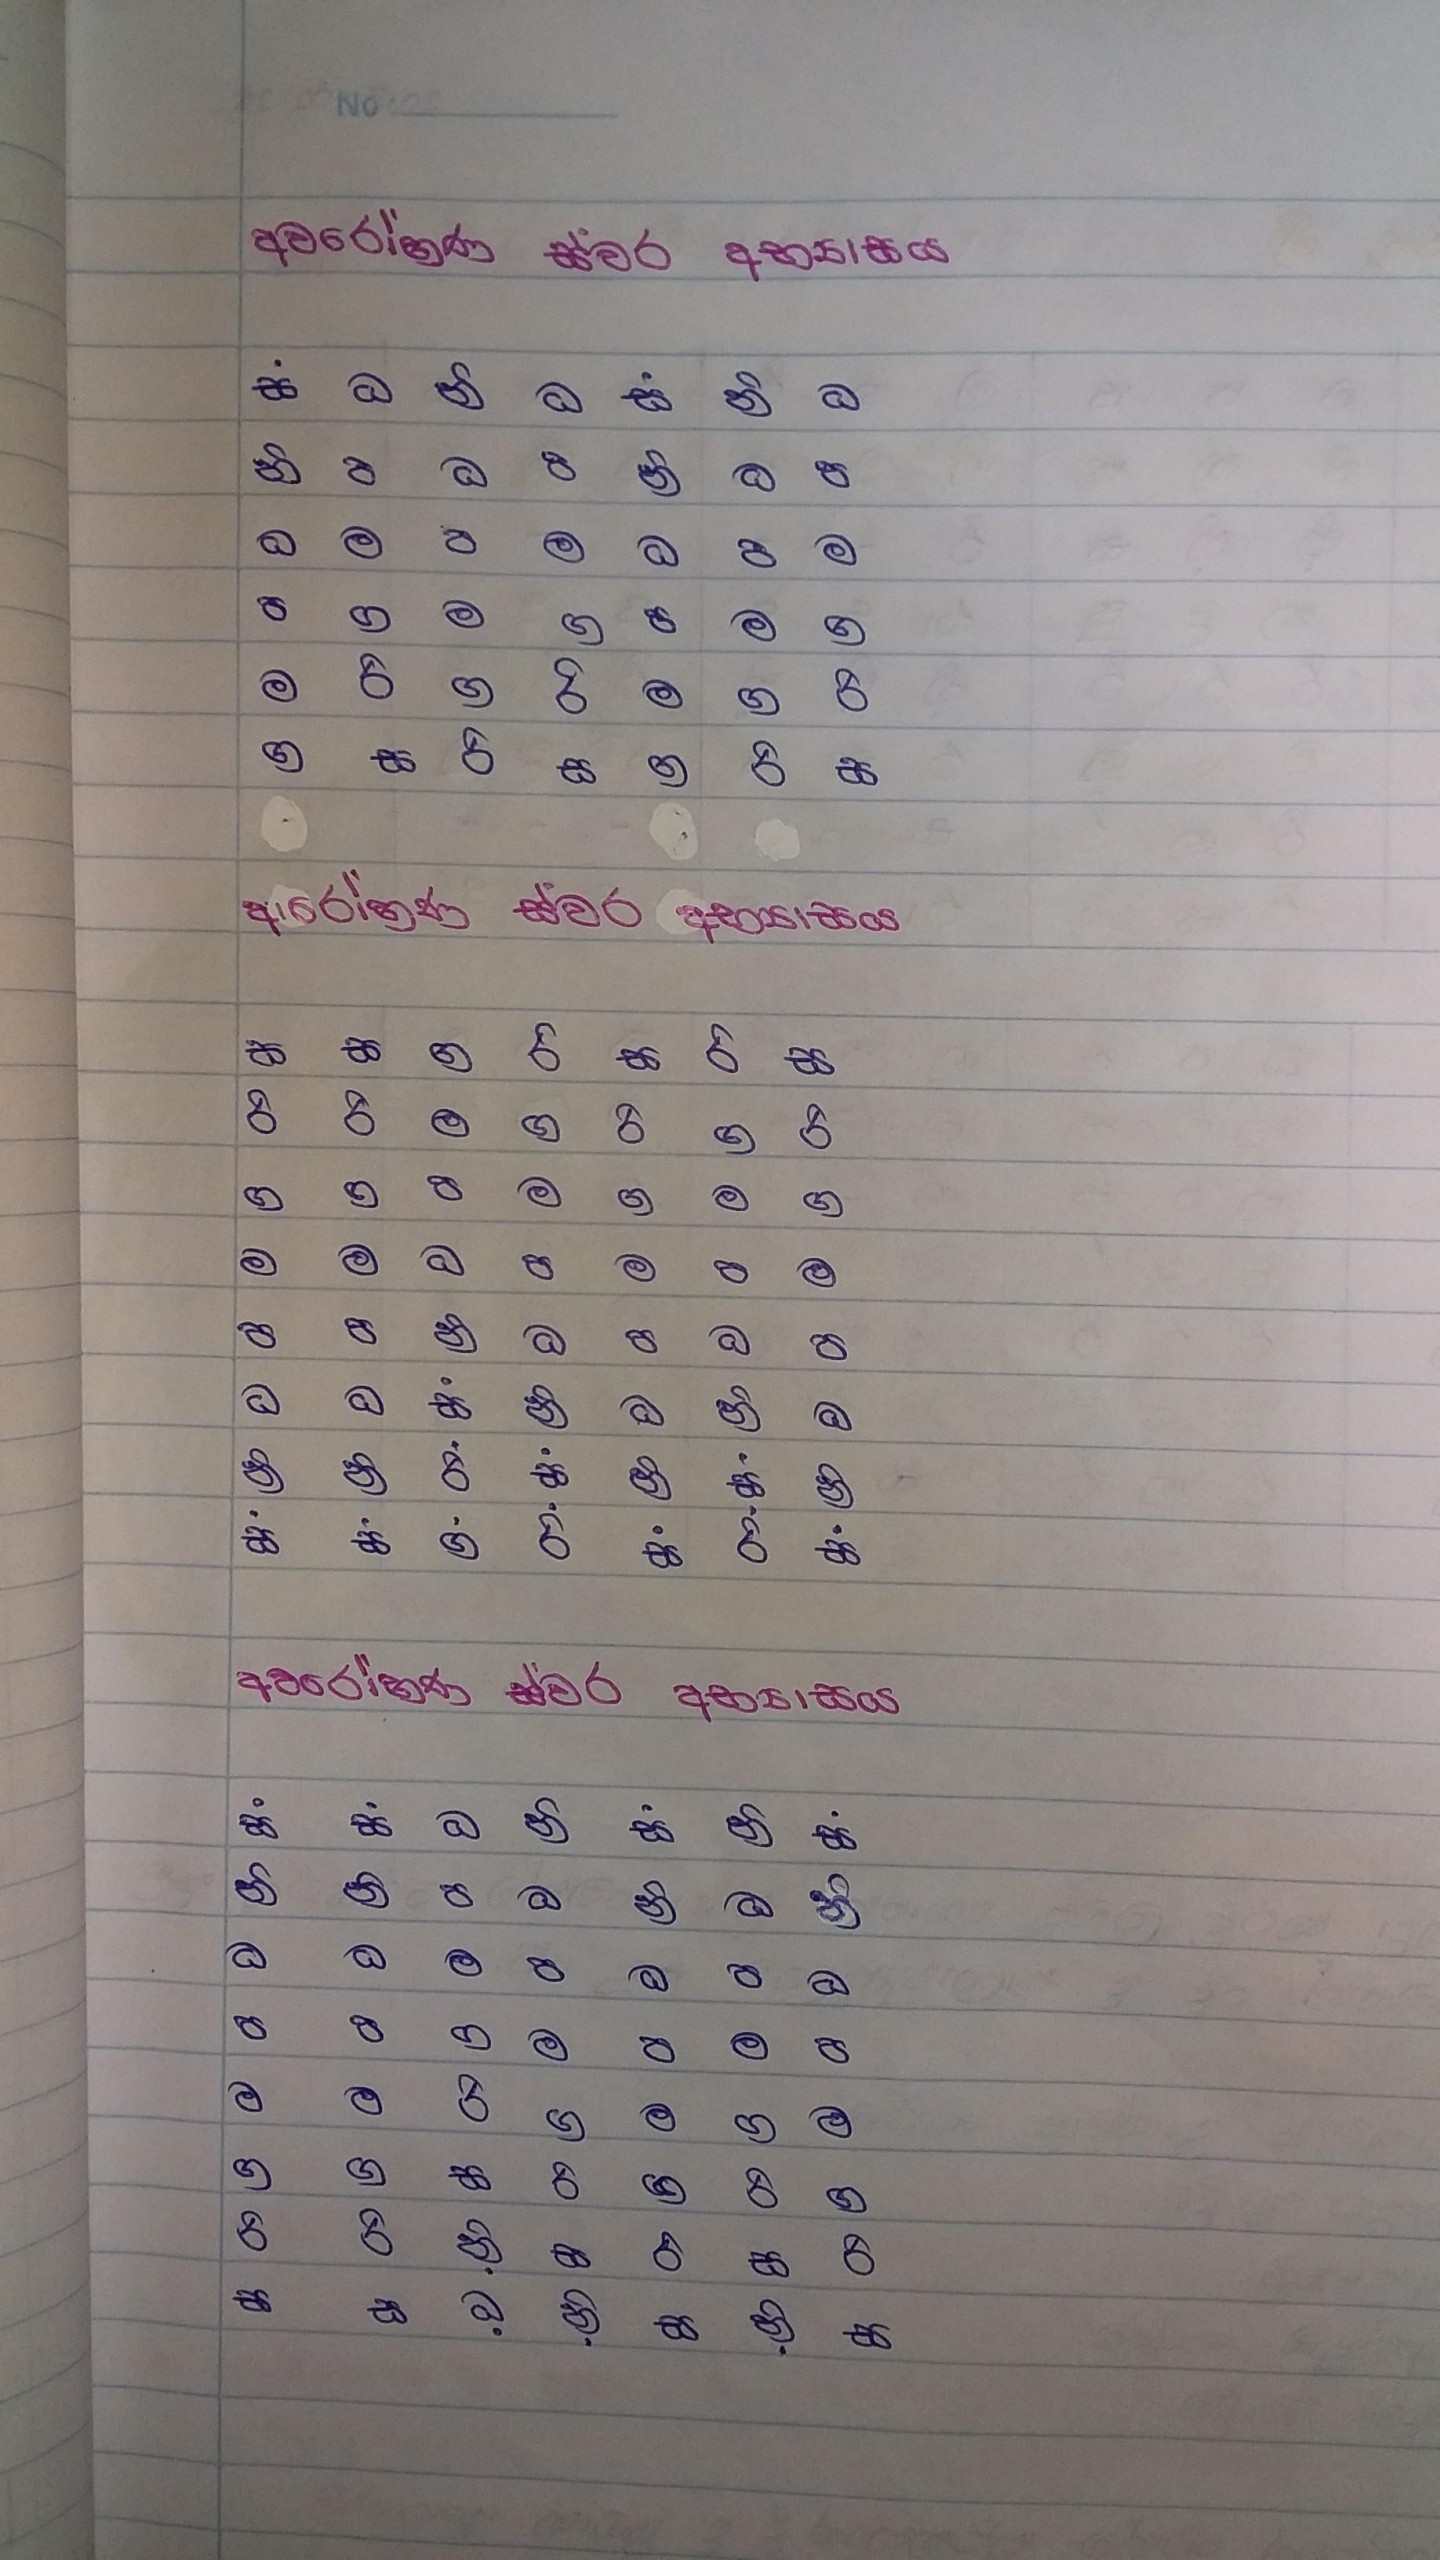 No
අවරෝහණ ස්වර අභ්‍යාසය
සං ධ නි ධ සං නි ධ
නි ප ධ ප නි ධ ප
ධ ම ප ම ධ ප ම
ප ග ම ග ප ම ග
ම රි ග රි ම ග රි
ග ස රි ස ග රි ස
ආරෝහණ ස්වර අභ්‍යාසය
ස ස ග රි ස රි ස
රි රි ම ග රි ග රි
ග ග ප ම ග ම ග
ම ම ධ ප ම ප ම
ප ප නි ධ ප ධ ප
ධ ධ සං නි ධ නි ධ
නි නි රි̇ සං නි සං නි
සං සං ග̇ රි̇ සං රි̇ සං
අවරෝහණ ස්වර අභ්‍යාසය
සං සං ධ නි සං නි සං
නි නි ප ධ නි ධ නි
ධ ධ ම ප ධ ප ධ
ප ප ග ම ප ම ප
ම ම රි ග ම ග ම
ග ග ස රි ග රි ග
රි රි නි̣ ස රි ස රි
ස ස ධ̣ නි̣ ස නි̣ ස